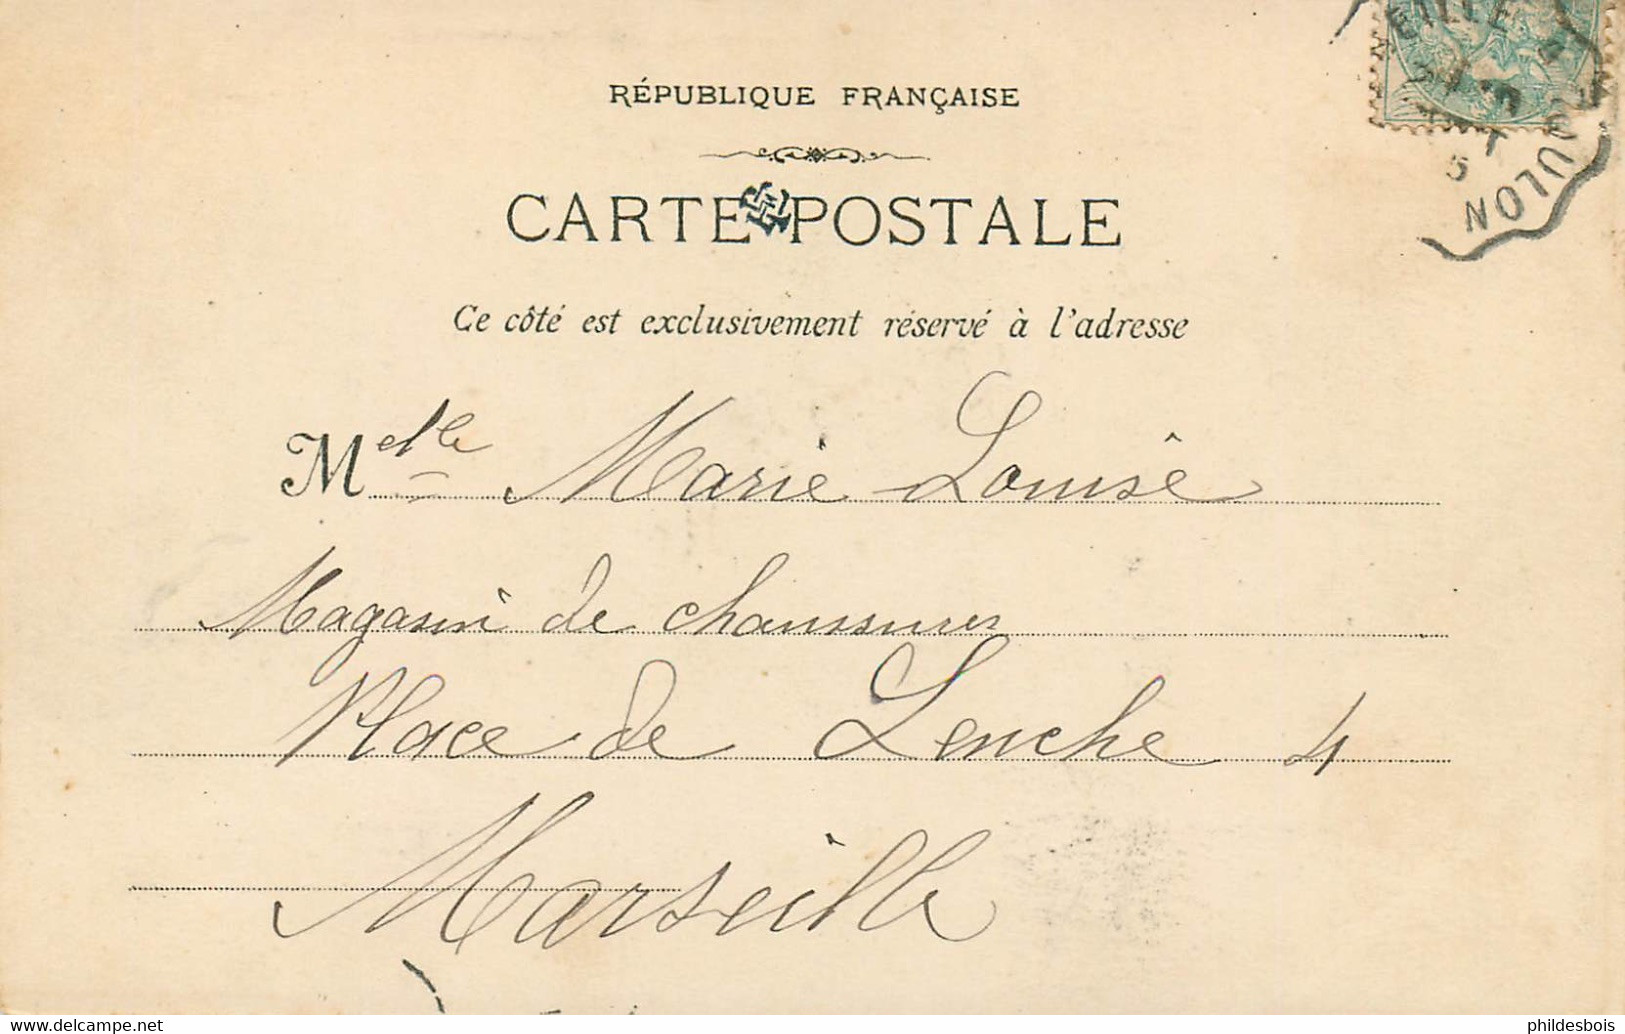 RÉPUBLIQUE FRANÇAISE
CARTE POSTALE
Ce côté est exclusivement réservé à l'adresse
Melle Marie Louise
Magasin de chaussures
Place de Lenche 4
Marseille
TOULON
5
www.delcampe.net
phildesbois